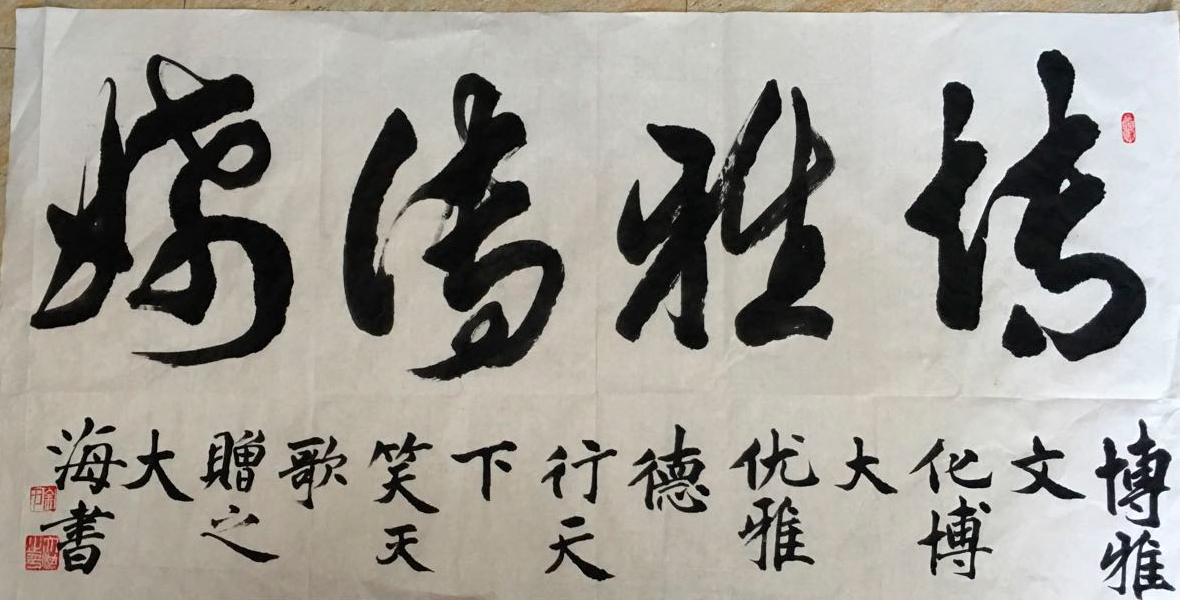 博雅傳媒
博雅
文
化博
大
优雅
德
行天
下
笑天
歌
贈之
大
海書